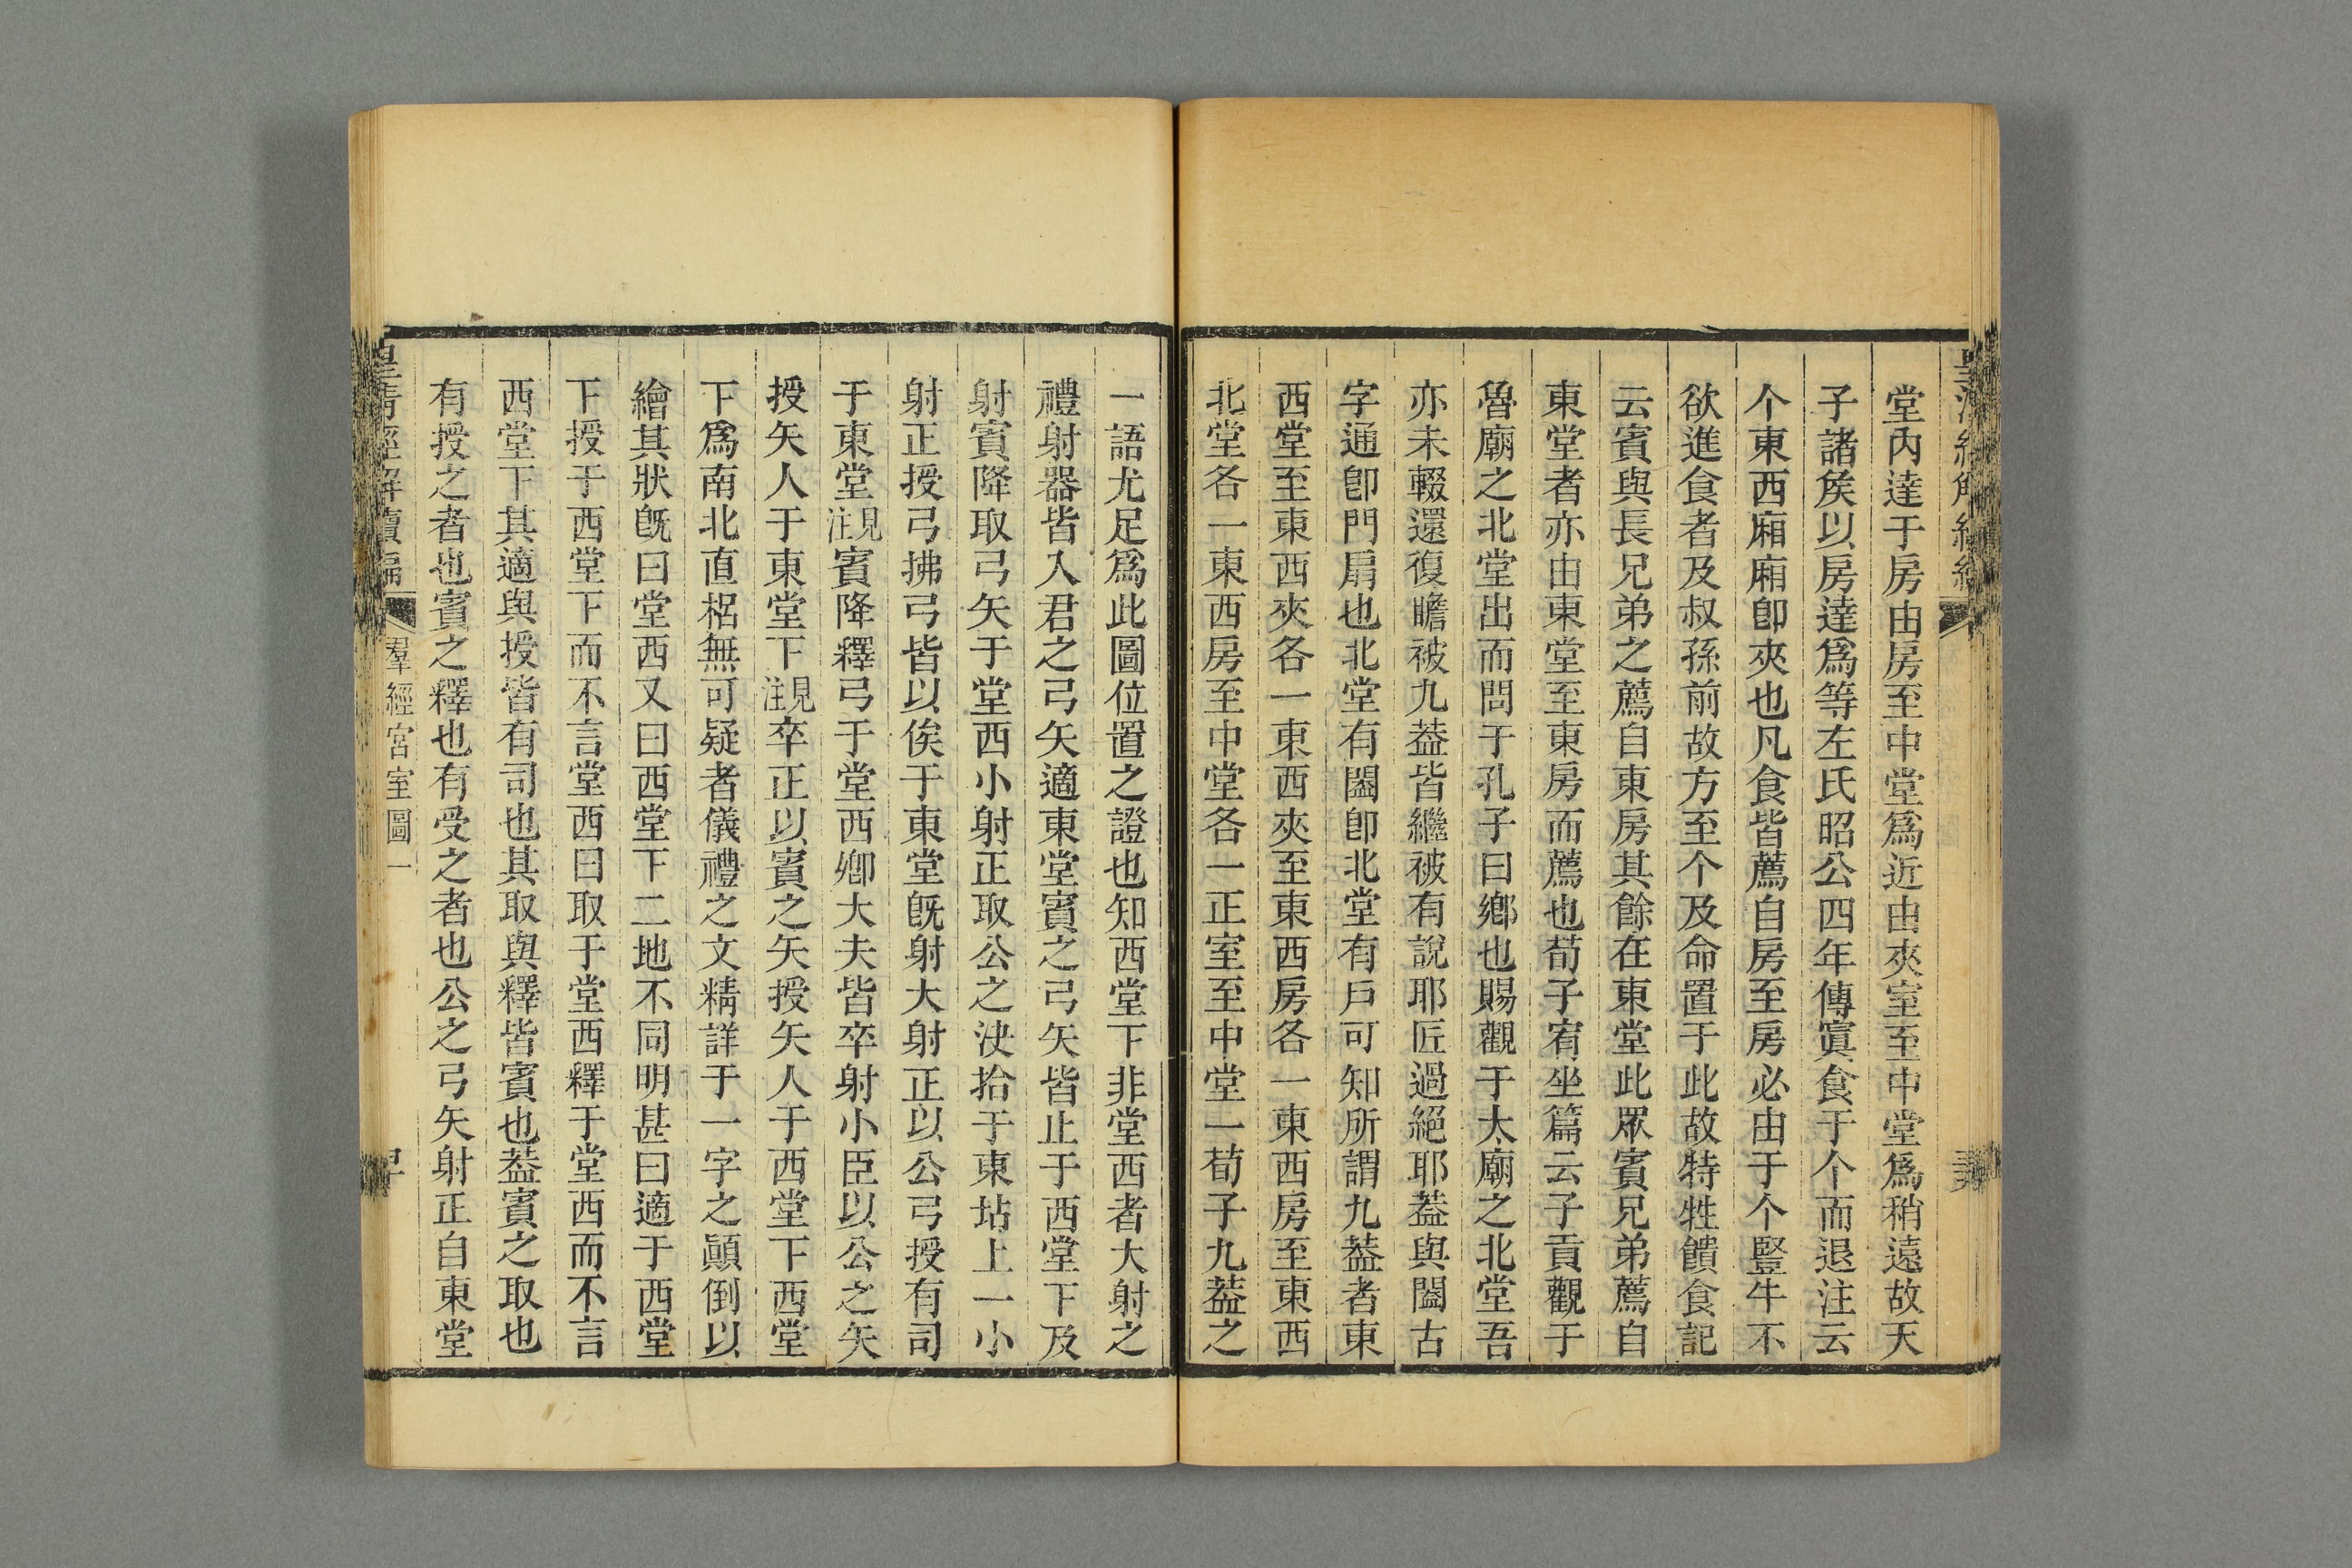 堂內達于房由房至中堂爲近由夾室至中堂爲稍遠故天
子諸矦以房達爲等左氏昭公四年傳寘食于个而退注云
个東西廂廂卽夾也凡食皆薦自房至房必由于个豎牛不
欲進食者及叔孫前故方至个及命置于此故特牲饋食記
云賓與長兄弟之薦自東房其餘在東堂此眾賓兄弟薦自
東堂者亦由東堂至東房而薦也荀子宥坐篇云子貢觀于
魯廟之北堂出而問于孔子曰鄉也賜觀于太廟之北堂吾
亦未輟還復瞻被九蓋皆繼被有說耶匠過絕耶蓋與闔古
字通卽門扇也北堂有闔卽北堂有戶可知所謂九蓋者東
西堂至東西夾各一東西夾至東西房各一東西房至東西
北堂各一東西房至中堂各一正室至中堂一荀子九蓋之
一語尤足爲此圖位置之證也知西堂下非堂西者大射之
禮射器皆入君之弓矢適東堂賓之弓矢皆止于西堂下及
射賓降取弓矢于堂西小射正取公之決拾于東坫上一小
射正授弓拂弓皆以俟于東堂旣射大射正以公弓授有司
于東堂見注賓降釋弓于堂西卿大夫皆卒射小臣以公之矢
授矢人于東堂下見注卒正以賓之矢授矢人于西堂下西堂
下爲南北直梠無可疑者儀禮之文精詳于一字之顚倒以
繪其狀旣曰堂西又曰西堂下二地不同明甚曰適于西堂
下授于西堂下而不言堂西曰取于堂西釋于堂西而不言
西堂下其適與授皆有司也其取與釋皆賓也蓋賓之取也
有授之者也賓之釋也有受之者也公之弓矢射正自東堂
皇清經解續編 羣經宮室圖一